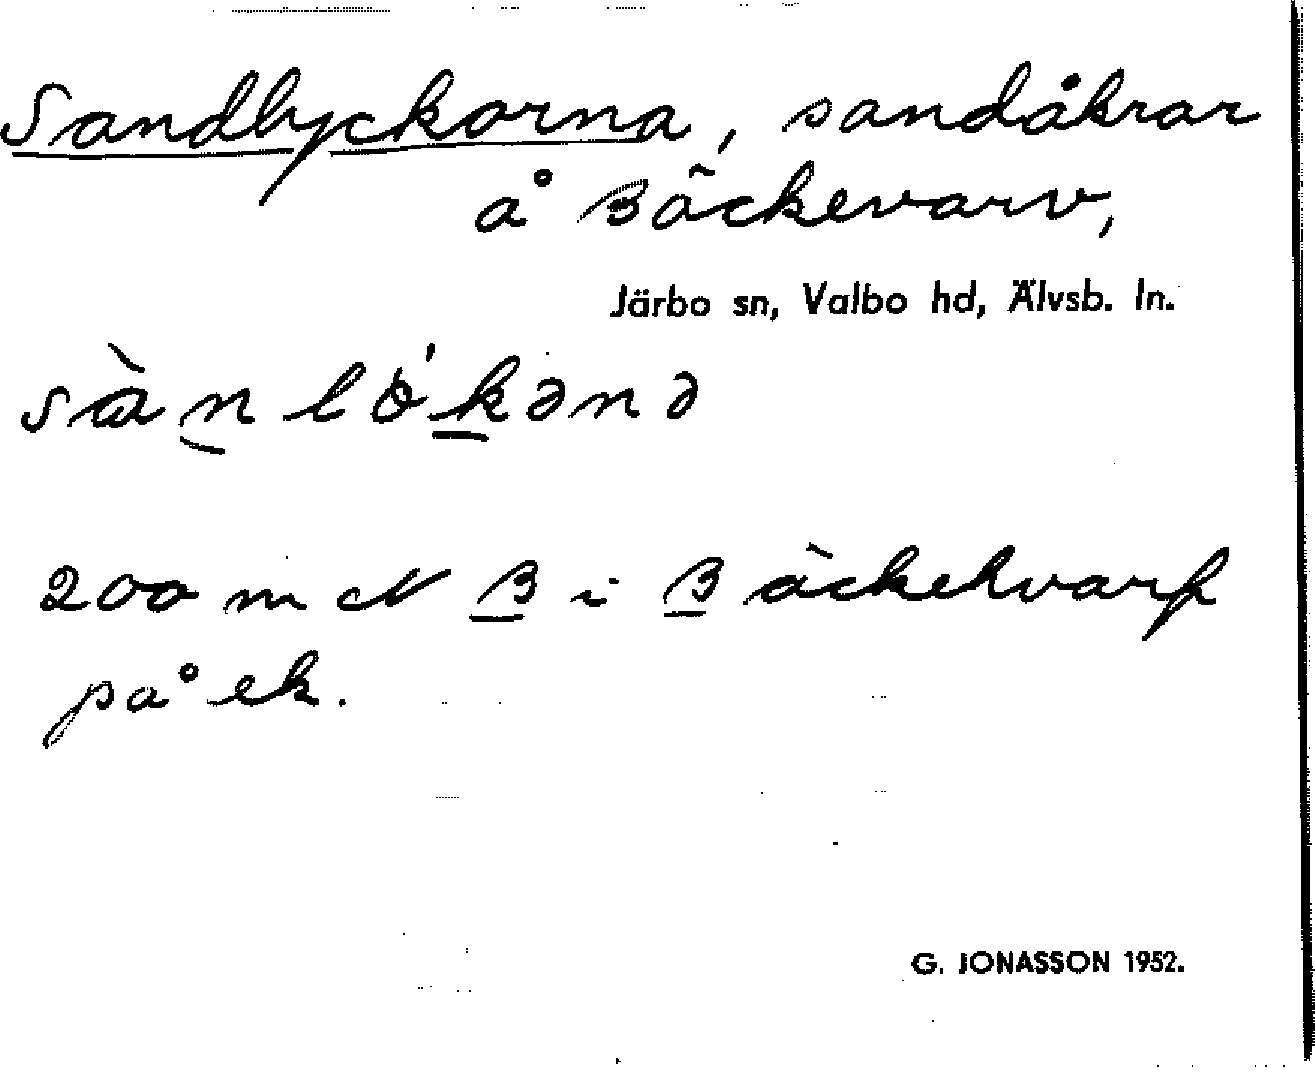 Sandlyckorna, sandåkrar
å Bäckevarv,
Järbo sn, Valbo hd, Älvsb. ln.
200 m N B i Bäckehvarf
på ek.
G. JONASSON 1952.